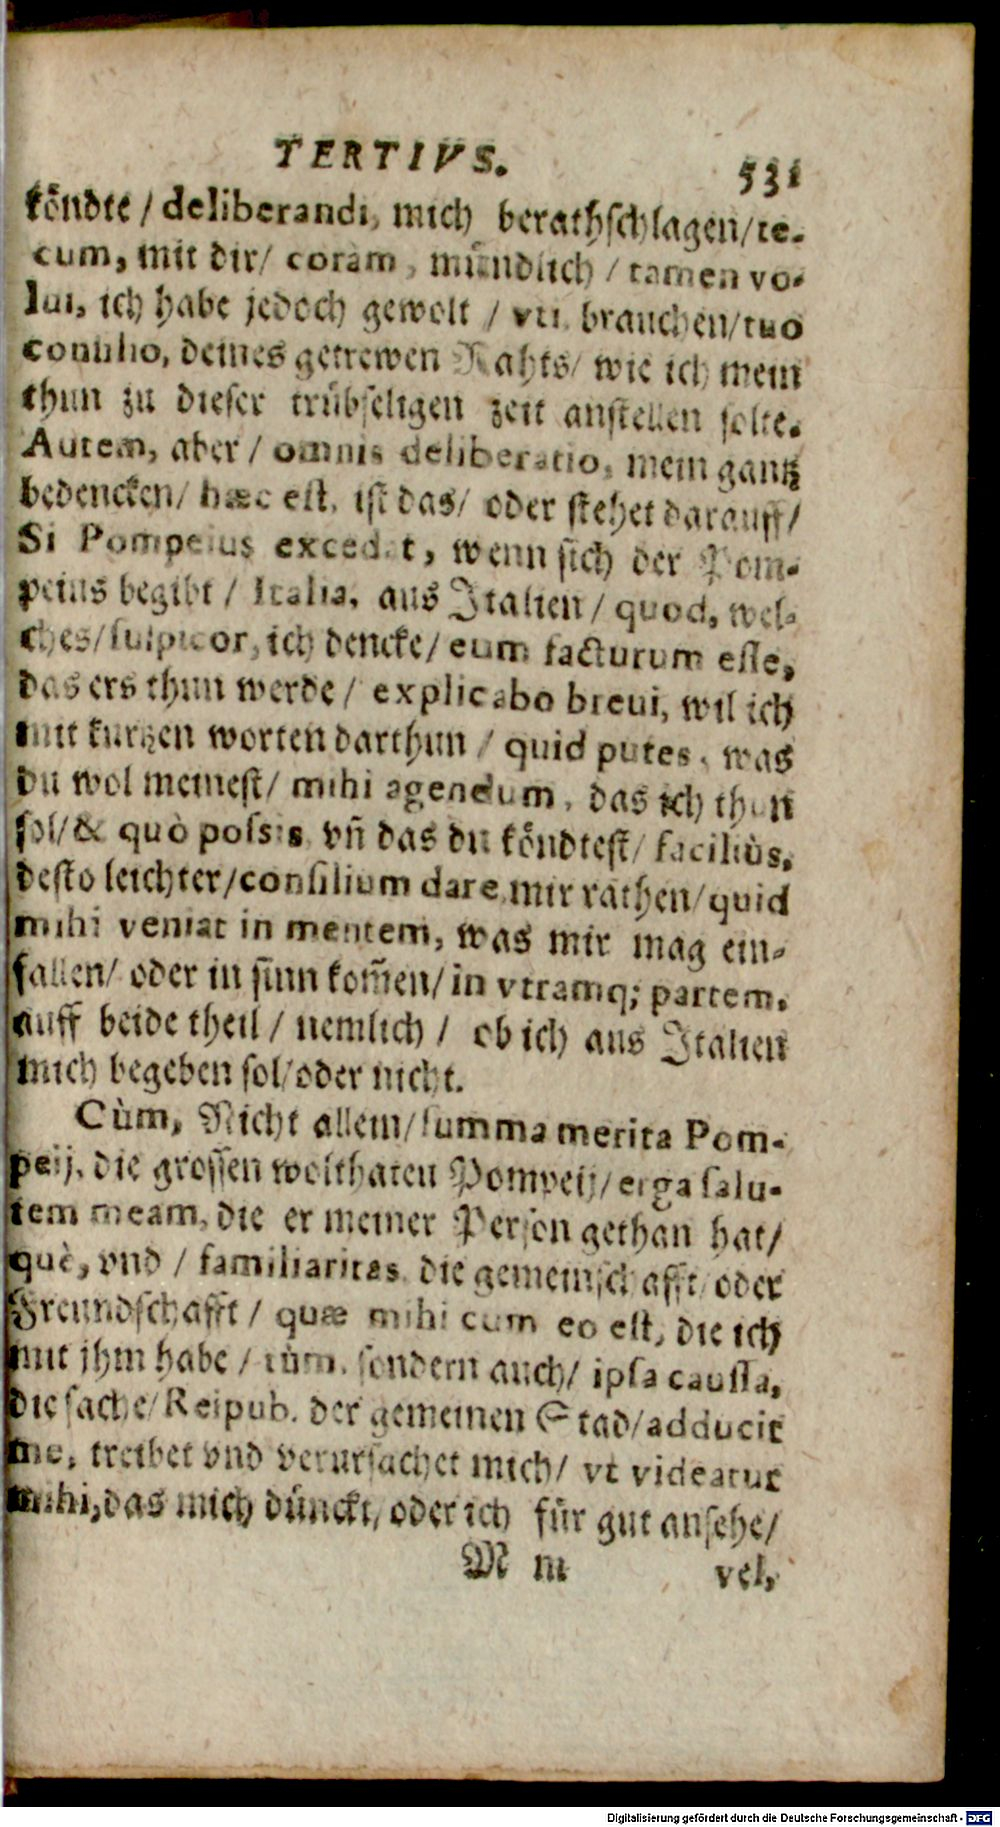 TERTIVS. 531
köndte / deliberandi, mich berathschlagen/te-
cum, mit dir/ coram, mündlich / tamen vo-
lui, ich habe jedoch gewolt / vti, brauchen/tuo
consilio, deines getrewen Rahts/ wie ich mein
thun zu dieser trübseligen zeit anstellen solte.
Autem, aber / omnis deliberatio, mein gantz
bedencken/ hæc est, ist das/ oder stehet darauff/
Si Pompeius excedat, wenn sich der Pom-
peius begibt / Italia, aus Italien / quod, wel-
ches/suspicor, ich dencke/ eum facturum esse,
das ers thun werde / explicabo breui, wil ich
mit kurtzen worten darthun / quid putes, was
du wol meinest/ mihi agendum, das ich thun
sol/& quò possis, vñ das du köndtest/ faciliùs,
desto leichter/consilium dare, mir rathen/quid
mihi veniat in mentem, was mir mag ein-
fallen/ oder in sinn kom̃en/in vtramq; partem,
auff beide theil / nemlich / ob ich aus Italien
mich begeben sol/oder nicht.
Cùm, Nicht allein/summa merita Pom-
peij, die grossen wolthaten Pompeij/erga salu-
tem meam, die er meiner Person gethan hat/
què, vnd / familiaritas, die gemeinschafft/oder
Freundschafft / quæ mihi cum eo est, die ich
mit jhm habe / tùm, sondern auch/ ipsa caussa,
die sache/Reipub. der gemeinen Stad/adducit
me, treibet vnd verursachet mich/ vt videatur
mihi,das mich dünckt, oder ich für gut ansehe/
M m vel,
Digitalisierung gefördert durch die Deutsche Forschungsgemeinschaft - DFG